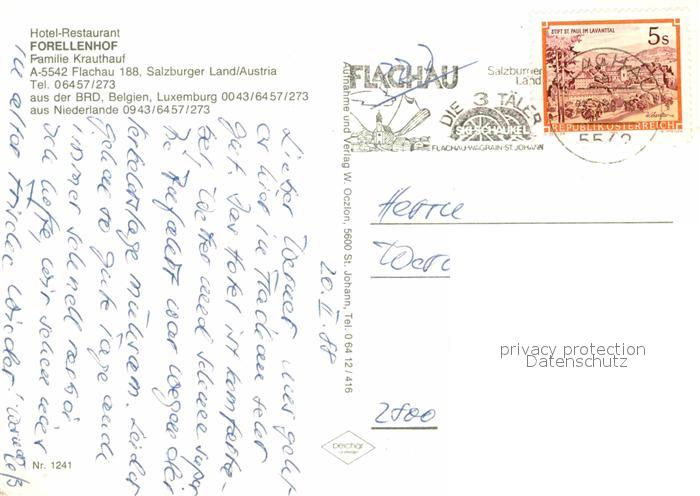 Hotel-Restaurant
FORELLENHOF
Familie Krauthauf
A-5542 Flachau 188, Salzburger Land/Austria
Tel. 06457/273
aus der BRD, Belgien, Luxemburg 0043/6457/273
aus Niederlande 0943/6457/273
STIFT ST. PAUL IM LAVANTTAL
5 S
REPUBLIK ÖSTERREICH
FLACHAU
Salzburger
Land
DIE 3 TÄLER
SKI-SCHAUKEL
FLACHAU-WAGRAIN-ST. JOHANN
5542
Aufnahme und Verlag W. Oczlon, 5600 St. Johann, Tel. 0 64 12 / 416
20. II. 88
Lieber Werner, mir geht
es hier in Flachau sehr
gut. Das Hotel ist komforta-
bel, Wetter und Schnee super
Die Zufahrt war wegen der
gehen so gute Tage
immer schnell vorbei
Ich hoffe, wir sehen uns
in alter Frische wieder!
Herrn
Wern
2800
privacy protection
Datenschutz
Nr. 1241